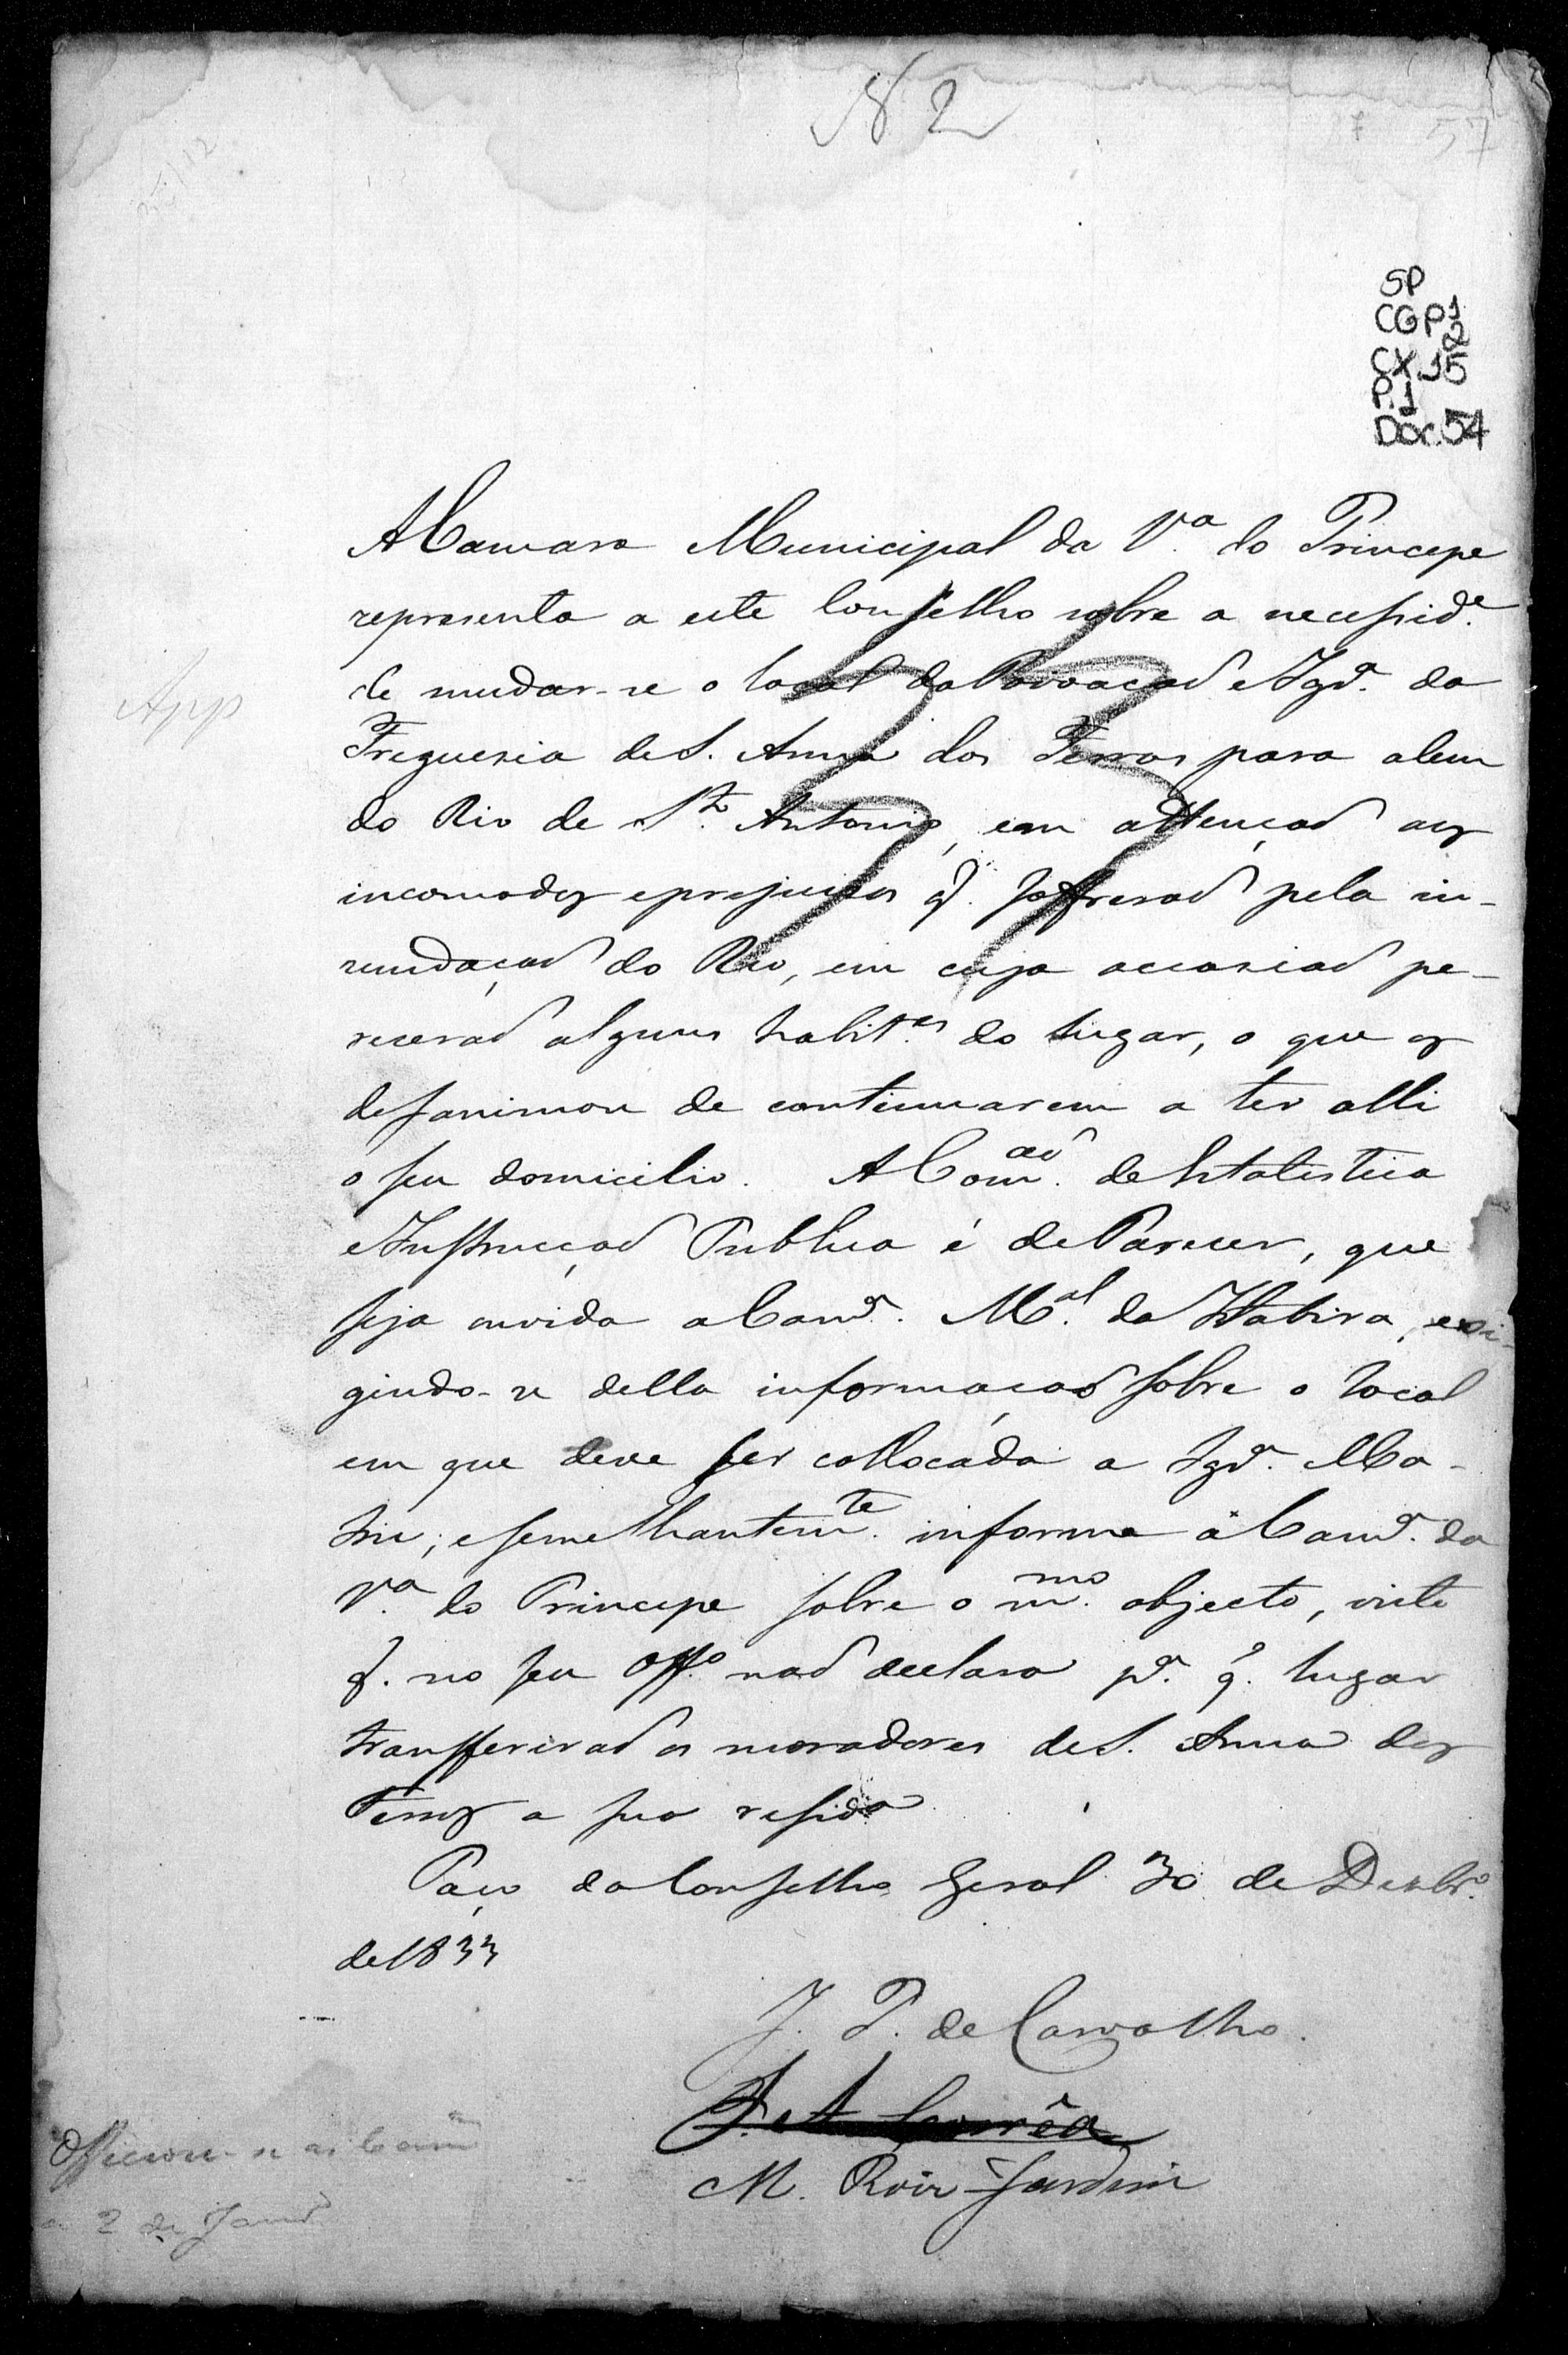 N 2
57
25/12
SP
CGP1
2
CX.15
P.1
Doc.54
A Camara Municipal da V.ª do Principe
representa a este Conselho sobre a necessid.e
de mudar-se o local da Povoação e Igr.ª da
App
Freguesia de S. Anna dos Ferros para alem
do Rio de S.to Antonio, em attenção aos
incomodos e prejuisos q. soffrerão pela in-
nundação do Rio, em cuja occasião pe-
recerão alguns habit.es do lugar, o que os
desanimou de continuarem a ter alli
o seu domicilio. A Com.ão de Estatistica
e Instrucção Publica é de Parecer, que
seja ouvida a Cam.ª M.al da Itabira, exi-
gindo-se della informação sobre o local
em que deve ser collocada a Igr.ª Ma-
triz; e semelhantem.te informe a Cam.ª da
V.ª do Principe sobre o m.mo objecto, visto
q. no seu Off.º não declara p.ª q. lugar
transferirão os moradores de S. Anna dos
Ferros a sua resid.ª
Paço do Conselho Geral 30 de Dezbr.º
de 1833
J. P. de Carvalho.
J. A. Corrêa
M. Roiz Jardim
Officiou-se as Cam.
a 2 de Janr.º